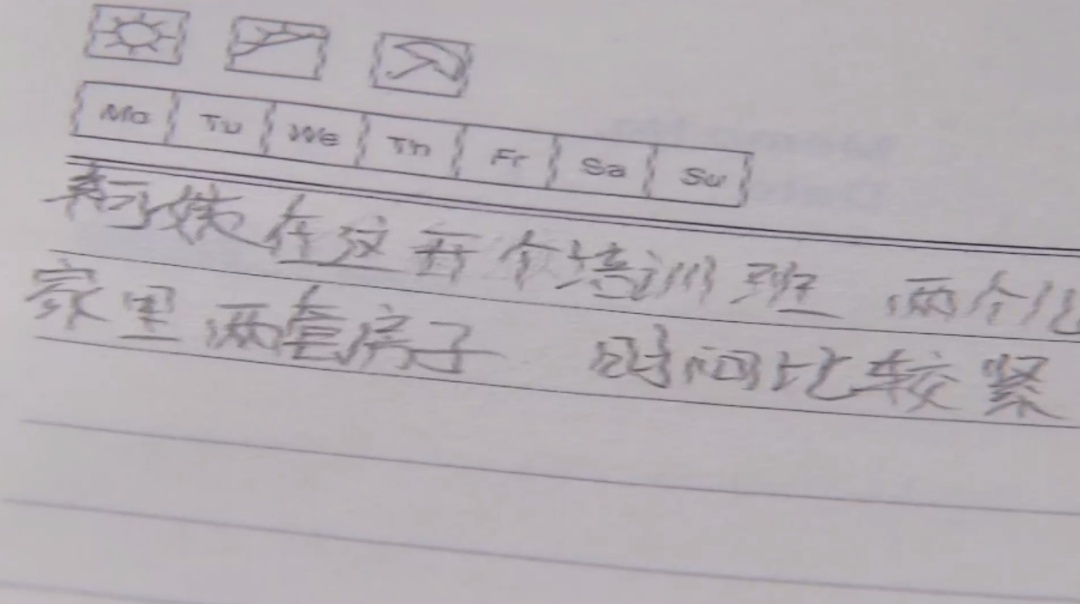 Mo Tu We Th Fr Sa Su
在这开个培训班 两个儿
家里两套房子 时间比较紧